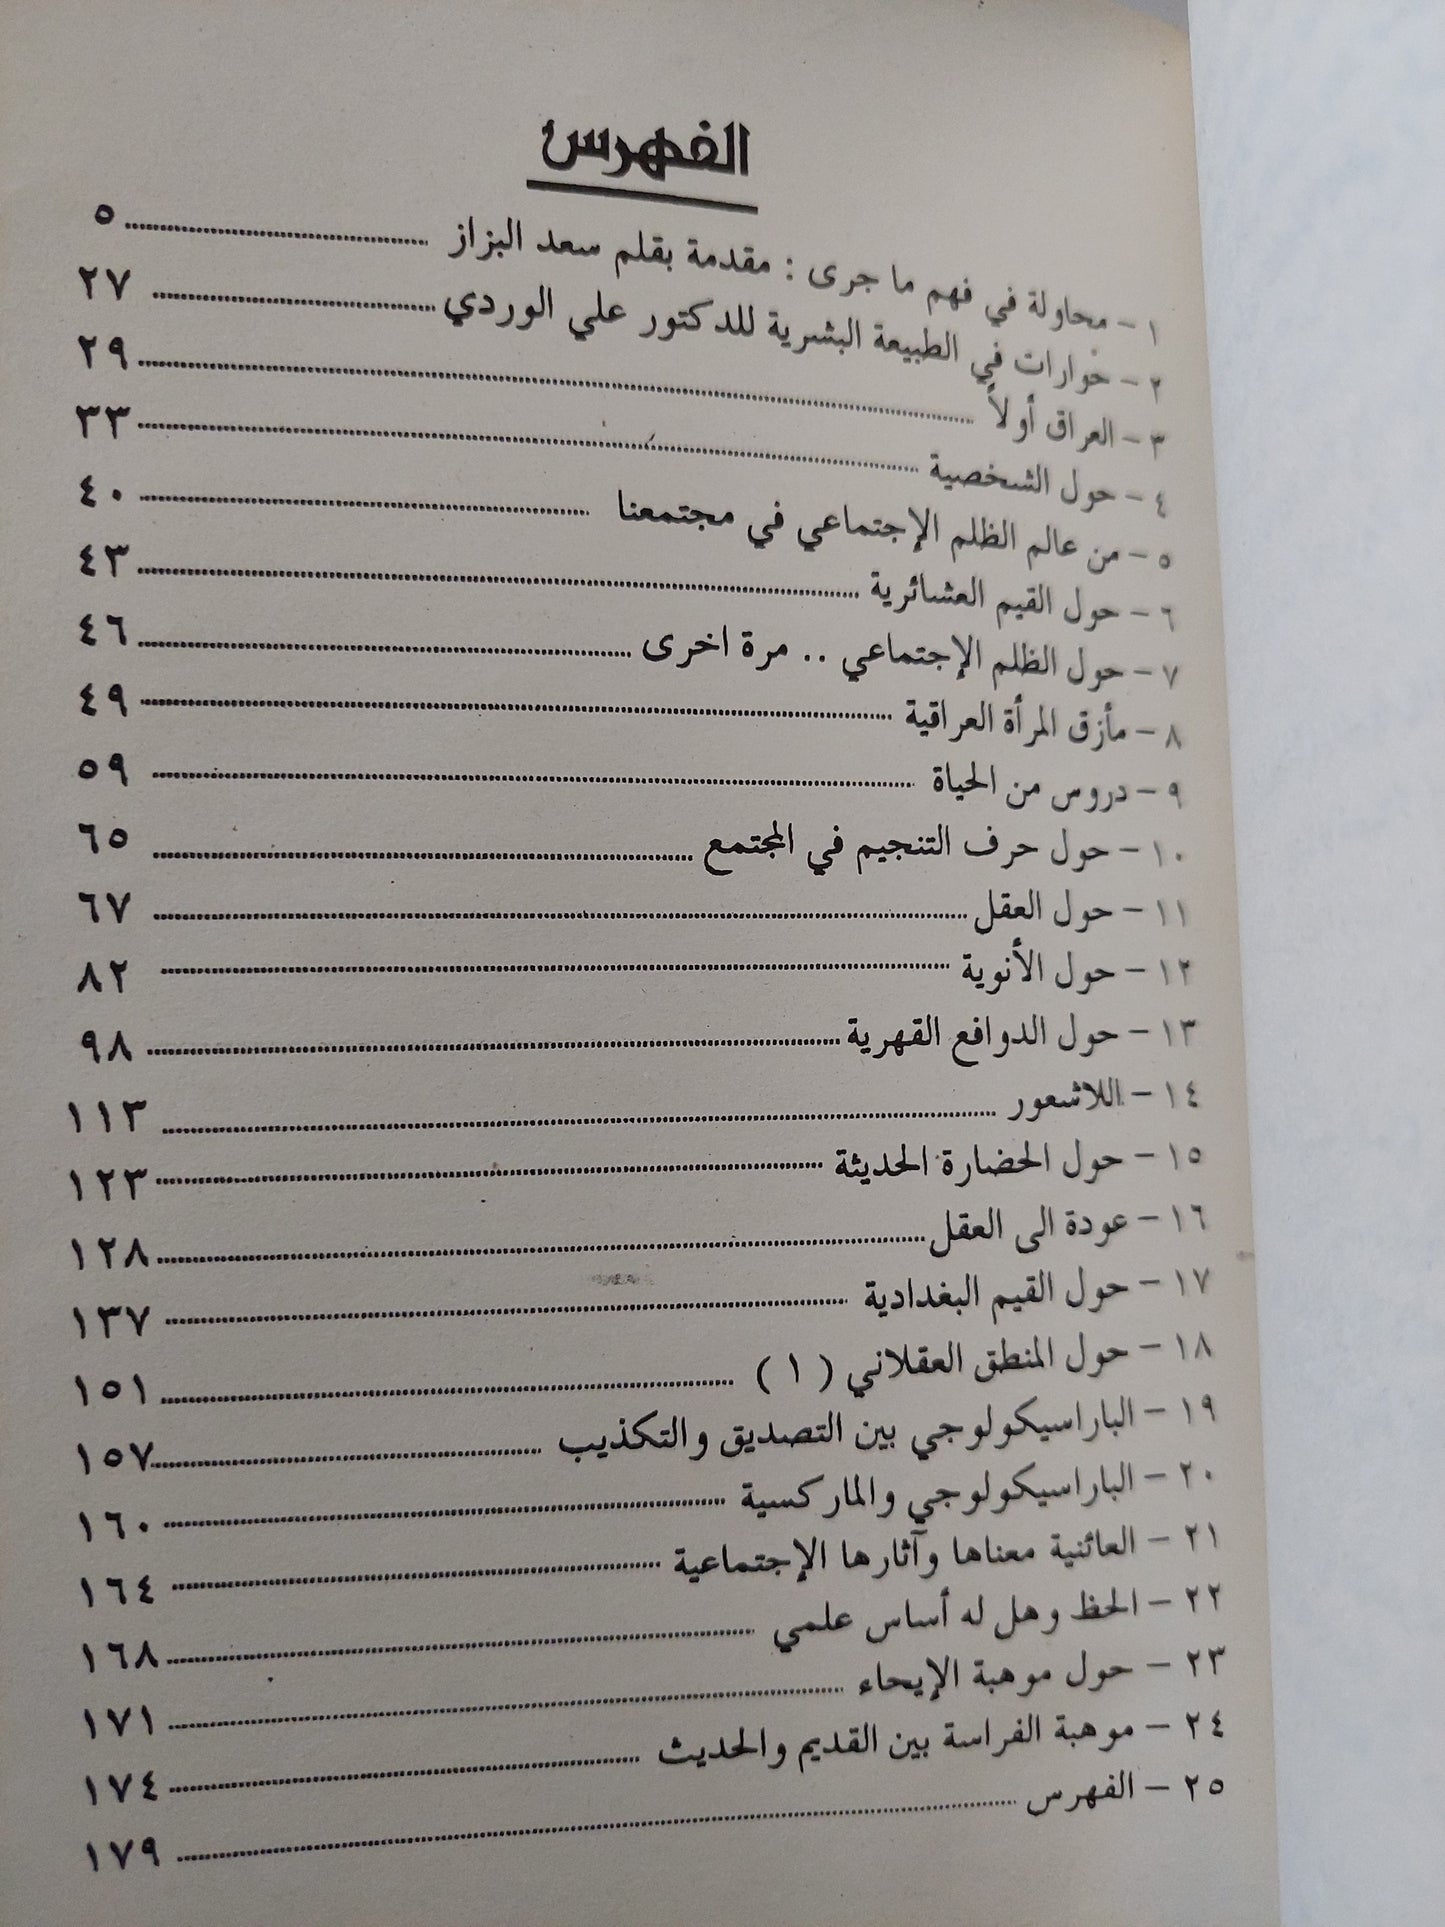 الفهرس
١ - محاولة في فهم ما جرى : مقدمة بقلم سعد البزاز ........ ٥
٢ - حوارات في الطبيعة البشرية للدكتور علي الوردي ........ ٢٧
٣ - العراق أولاً ........ ٢٩
٤ - حول الشخصية ........ ٣٣
٥ - من عالم الظلم الإجتماعي في مجتمعنا ........ ٤٠
٦ - حول القيم العشائرية ........ ٤٣
٧ - حول الظلم الإجتماعي .. مرة اخرى ........ ٤٦
٨ - مأزق المرأة العراقية ........ ٤٩
٩ - دروس من الحياة ........ ٥٩
١٠ - حول حرف التنجيم في المجتمع ........ ٦٥
١١ - حول العقل ........ ٦٧
١٢ - حول الأنوية ........ ٨٢
١٣ - حول الدوافع القهرية ........ ٩٨
١٤ - اللاشعور ........ ١١٣
١٥ - حول الحضارة الحديثة ........ ١٢٣
١٦ - عودة الى العقل ........ ١٢٨
١٧ - حول القيم البغدادية ........ ١٣٧
١٨ - حول المنطق العقلاني ( ١ ) ........ ١٥١
١٩ - الباراسيكولوجي بين التصديق والتكذيب ........ ١٥٧
٢٠ - الباراسيكولوجي والماركسية ........ ١٦٠
٢١ - العائنية معناها وآثارها الإجتماعية ........ ١٦٤
٢٢ - الحظ وهل له أساس علمي ........ ١٦٨
٢٣ - حول موهبة الإيحاء ........ ١٧١
٢٤ - موهبة الفراسة بين القديم والحديث ........ ١٧٤
٢٥ - الفهرس ........ ١٧٩